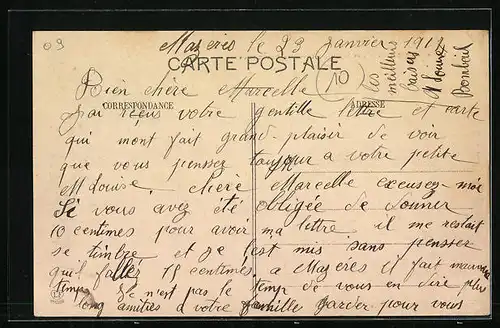 09
Mazeris le 23 Janvier 1912
CARTE POSTALE
10
les
meilleurs
baisers
Bien chère Marcelle
CORRESPONDANCE
ADRESSE
J'ai reçus votre gentille lettre et carte
qui mont fait grand plaisir de voir
que vous pensser toujour a votre petite
M Louise. Chère Marcelle excusez-moi
Si vous avez été obligée de donner
10 centimes pour avoir ma lettre il me restait
se timbre et je l'est mis sans pensser
qu'il faller 15 centimes a Mazeres il fait mauvais
temps Se n'est pas le temp de vous en dire plus
long amitiés a votre famille garder pour vous